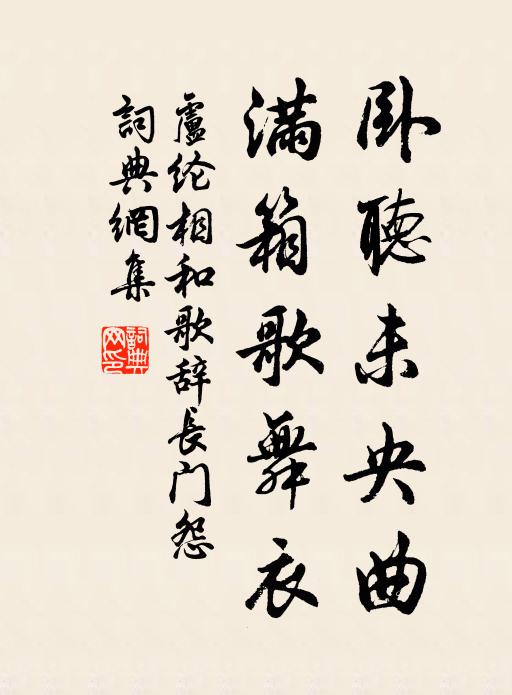 卧聽未央曲
滿箱歌舞衣
盧纶相和歌辞長门怨
詞典網集
詞典
网印